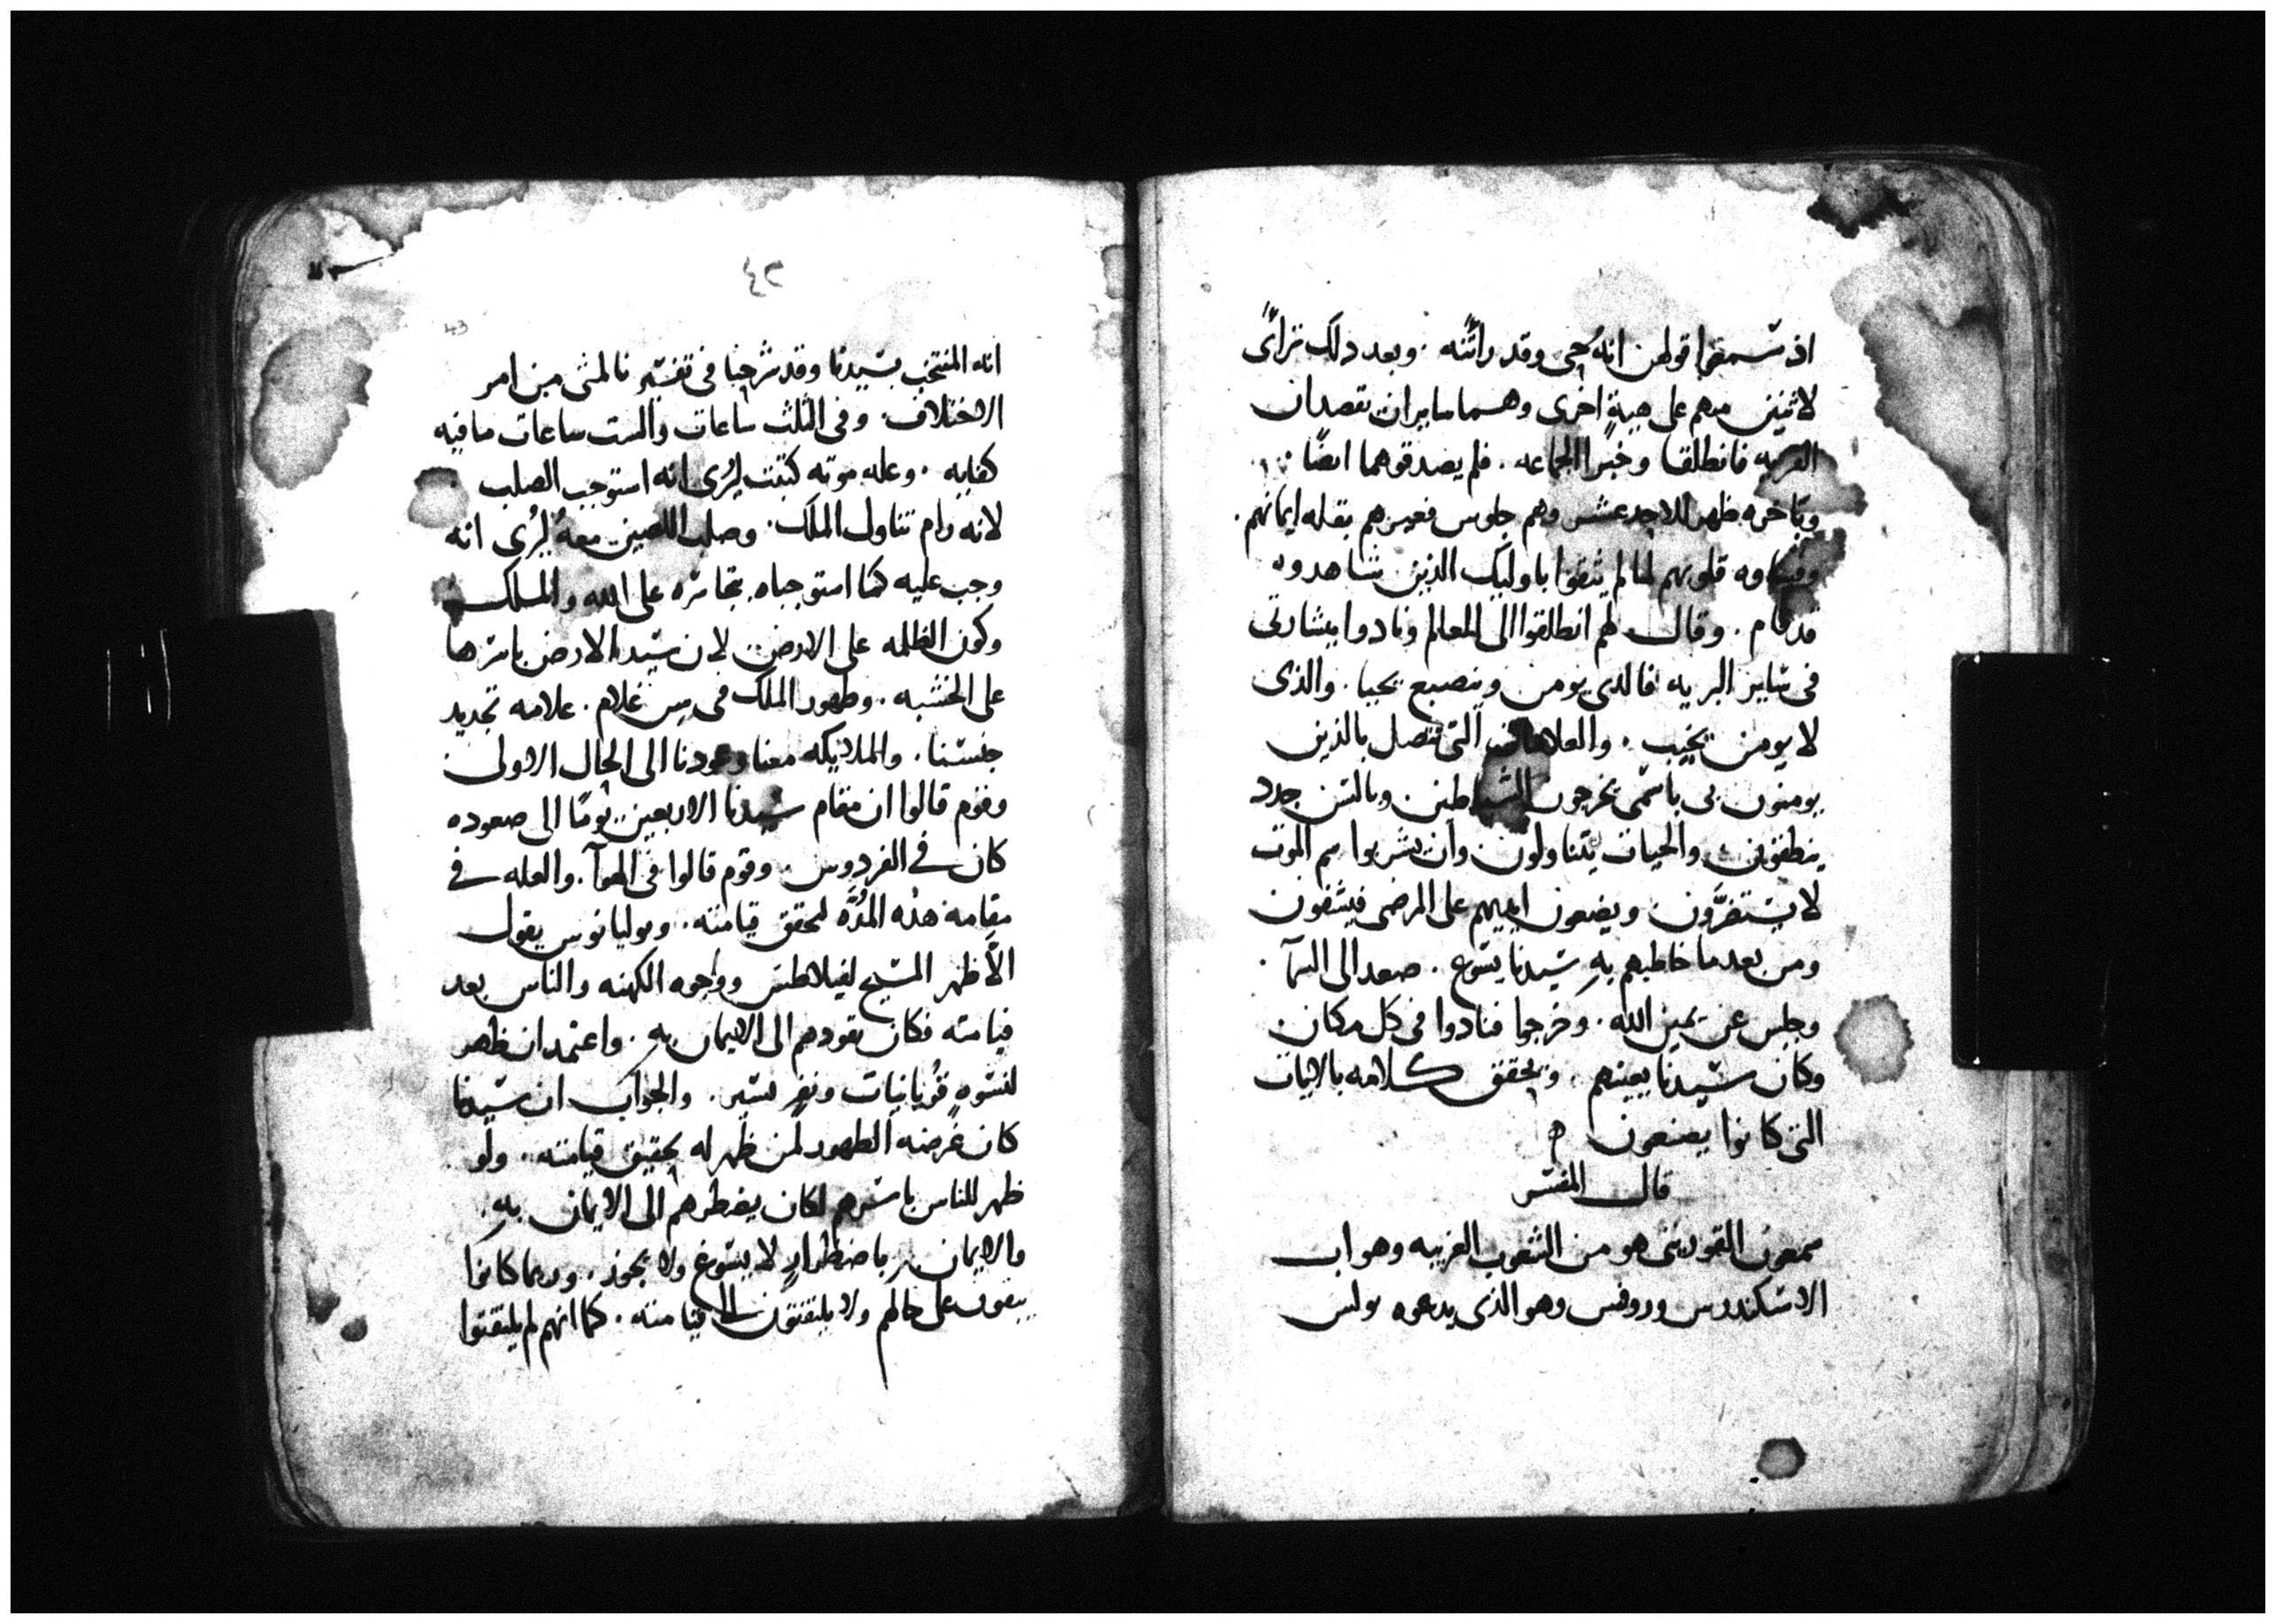 اذ سمعوا قولهن انه حي وقد رأتنه . وبعد دلك تراأى
لاثنين منهم على هيية اخرى وهما سايران تقصدان
القريه فانطلقا وخبرا الجماعه . فلم يصدقوهما ايضًا .
وباخره ظهر للاحد عشر وهم جلوس فعيرهم بقله ايمانهم .
وقساوه قلوبهم لما لم يثقوا باوليك الذين شاهدوه
قد قام . وقال لهم انطلقوا الى المعالم ونادوا ببشارتي
في ساير البريه فالدي يومن وينصبع يحيا . والذى
لا يومن يخيب . والعلامات التي تتصل بالذين
يومنون بي باسمى يخرجون الشياطين وبالسن جدد
ينطقون والحيات يتناولون وان يشربوا سم الموت
لا يستضرَّون ويضعون ايديهم على المرضى فيشفون
ومن بعد ما خاطبهم بهِ سيدنا يسوع . صعد الى السمآ .
وجلس عن يمين الله . وخرجوا فنادوا فى كل مكان
وكان سيدنا يعينهم . ويحقق كلامه بالايات
التي كانوا يصنعون ه
قال المفسر
سمعون القورينى هو من الشعوب الغريبه وهو اب
الاسكندروس وروفس وهو الذى يدعوه بولس
٤٢
43
انه المنتخب بسيدنا وقد شرحنا فى تفسيرنا لمتى من امر
الاختلاف . وفي الثلث ساعات والست ساعات ما فيه
كفايه . وعله موته كتبت ليُرى انه استوجب الصلب .
لانه رام تناول الملك . وصلب اللصين معهُ ليُرى انه
وجب عليه كما استوجباه بتجاسره على الله والملك
وكون الظلمه على الارض لان سيد الارض باسرها
على الخشبه . وظهور الملك في سن غلام . علامه تجديد
جنسنا . والملاييكه معنا وعودنا الى الحال الاولى
وقوم قالوا ان مقام سيدنا الاربعين يومًا الى صعوده
كان في الفردوس . وقوم قالوا فى الهوآ . والعله في
مقامه هذه المُدَّه لتحقق قيامته . ويوليانوس يقول
الَّا ظهر المسيح لفيلاطس ووجوه الكهنه والناس بعد
قيامته فكان يقودهم الى الايمان به . واعتمد ان ظهر
لنسوهٍ قُربانيات ونفرٍ يسير . والجواب ان سيدنا
كان غرضه الظهور لمن ظهر له بحقيق قيامته . ولو
ظهر للناس باسرهم لكان يضطرهم الى الايمان بهِ .
والايمان باضطرارٍ لا يسوغ ولا يجوز . وربما كانوا
يبقون على حالهم ولا يلتفتون الى قيامته . كما انهم لم يلتفتوا